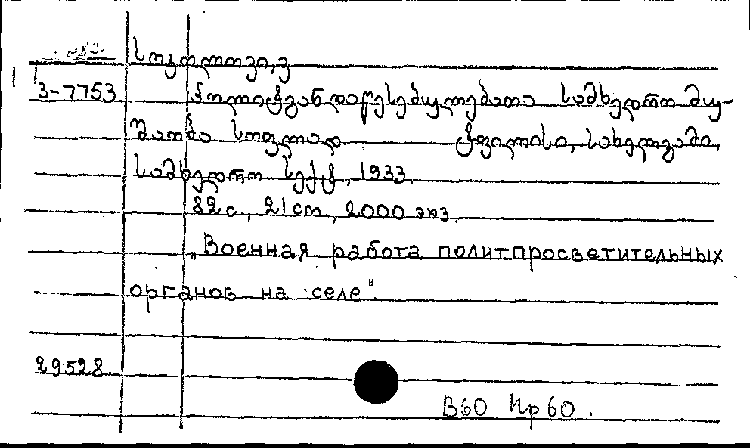 სოკოლოვი, ვ
3-7753 პოლიტგანდაწესებულებათა სამხედრო მუ-
შაობა სოფლად ტფილისი, სახელგამი,
სამხედრო სექტ, 1933.
82 с, 21 cm, 2000 экз.
„Военная работа политпросветительных
органов на селе".
29528
В60 Кр 60.